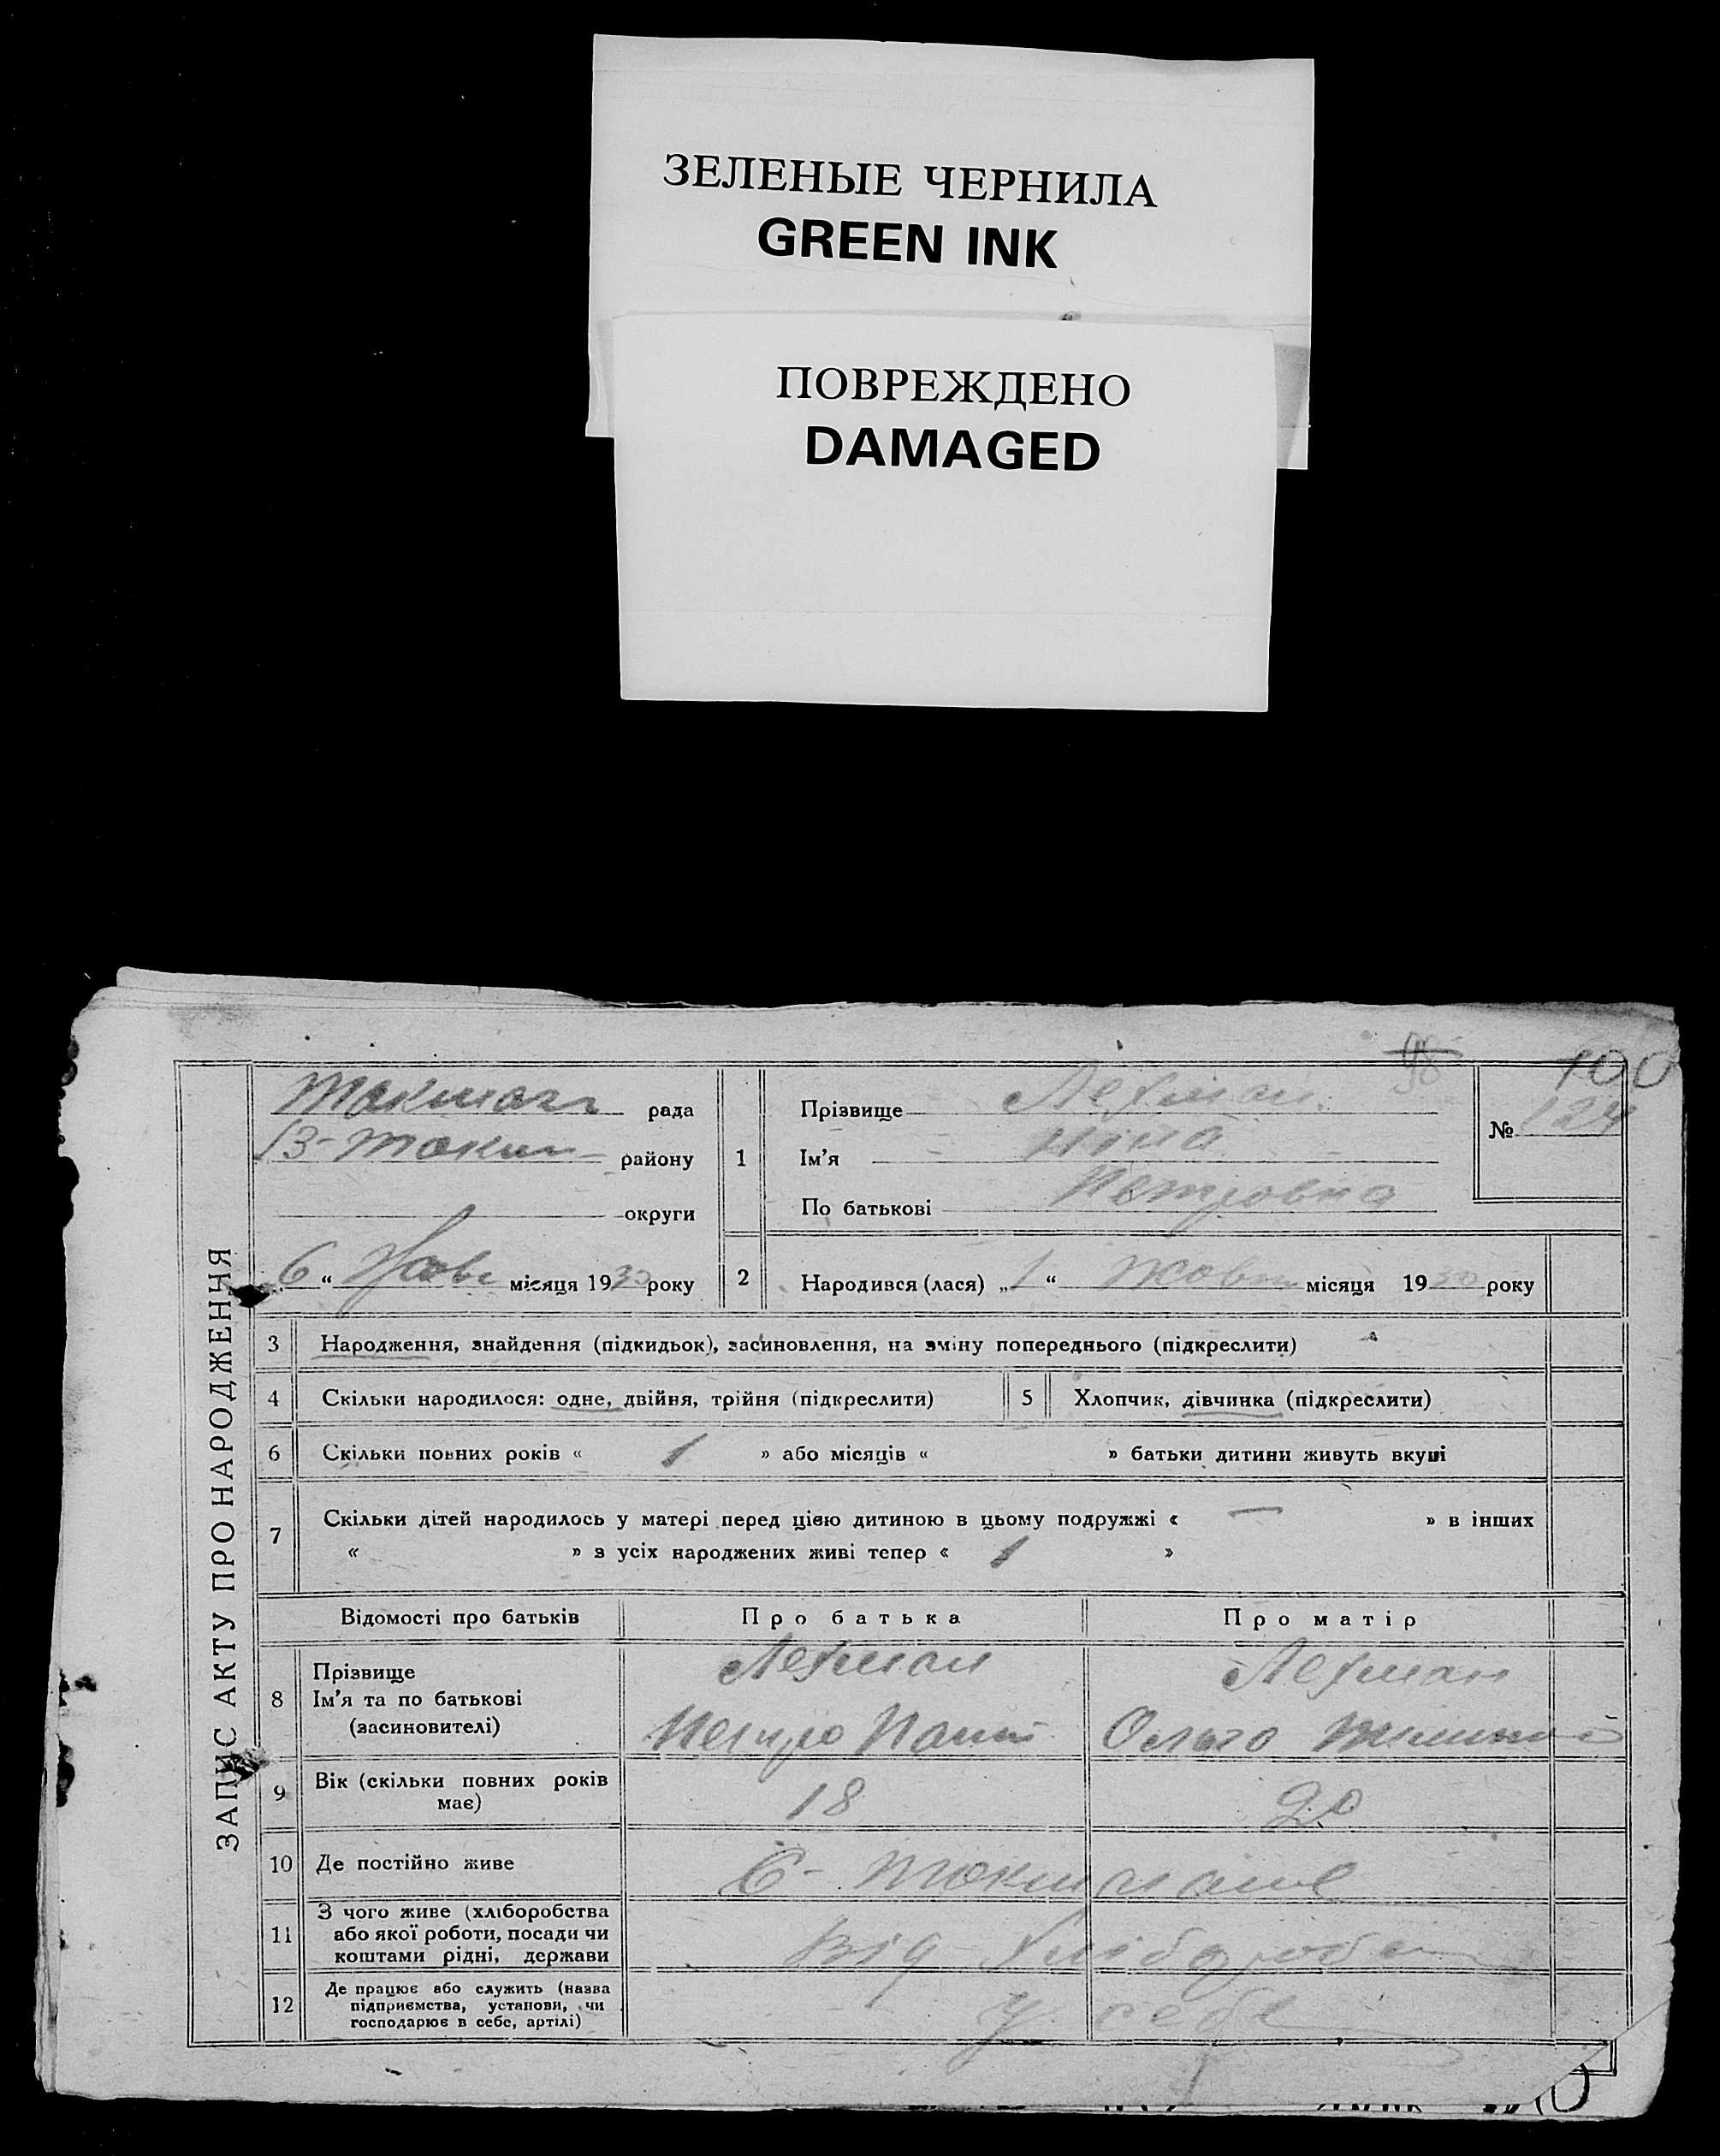 ЗЕЛЕНЫЕ ЧЕРНИЛА
GREEN INK
ПОВРЕЖДЕНО
DAMAGED
98
100
ЗАПИС АКТУ ПРО НАРОДЖЕННЯ
рада
В-Токм району
округи
6 “ Жовт місяця 1930 року
1
Прізвище Лехман
Ім'я Ніна
По батькові Петровна
№ 124
2
Народився (лася) „1“ Жовтн місяця 1930 року
3 Народження, знайдення (підкидьок), засиновлення, на зміну попереднього (підкреслити)
4 Скільки народилося: одне, двійня, трійня (підкреслити) 5 Хлопчик, дівчинка (підкреслити)
6 Скільки повних років « 1 » або місяців « » батьки дитини живуть вкупі
7 Скільки дітей народилось у матері перед цією дитиною в цьому подружжі « — » в інших
« » з усіх народжених живі тепер « 1 »
Відомості про батьків Про батька Про матір
8 Прізвище Лехман Лехман
Ім'я та по батькові
(засиновителі) Петро Ольга
9 Вік (скільки повних років має) 18 20
10 Де постійно живе
11 З чого живе (хліборобства
або якої роботи, посади чи
коштами рідні, держави Від Хлібороб
12 Де працює або служить (назва
підприємства, установи, чи
господарює в себе, артілі) У себе